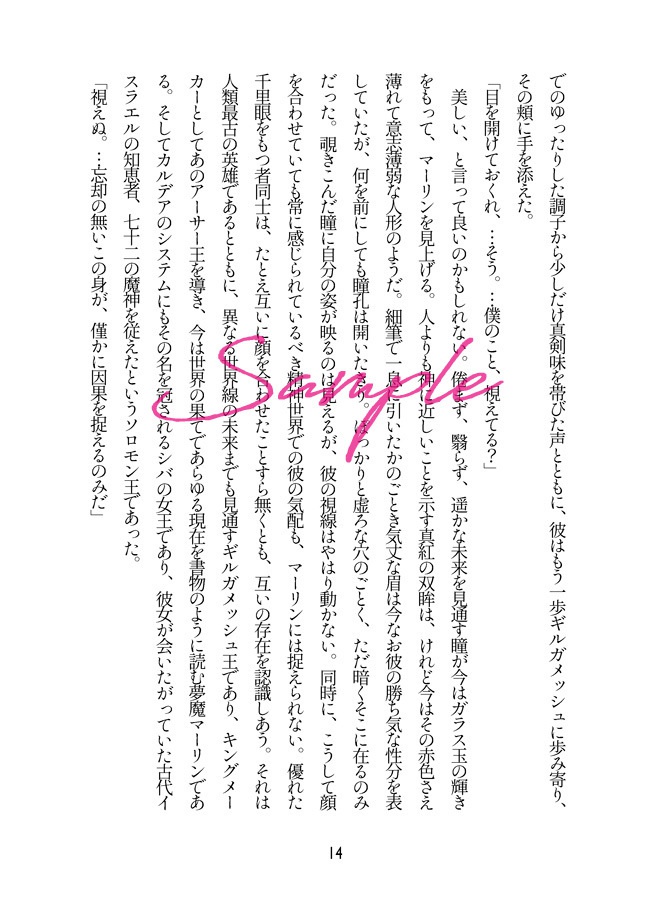 でのゆったりした調子から少しだけ真剣味を帯びた声とともに、彼はもう一歩ギルガメッシュに歩み寄り、
その頬に手を添えた。
「目を開けておくれ、…そう。…僕のこと、視えてる？」
美しい、と言って良いのかもしれない。倦まず、翳らず、遥かな未来を見通す瞳が今はガラス玉の輝き
をもって、マーリンを見上げる。人よりも神に近しいことを示す真紅の双眸は、けれど今はその赤色さえ
薄れて意志薄弱な人形のようだ。細筆で一息に引いたかのごとき気丈な眉は今なお彼の勝ち気な性分を表
していたが、何を前にしても瞳孔は開いたきり。ぽっかりと虚ろな穴のごとく、ただ暗くそこに在るのみ
だった。覗きこんだ瞳に自分の姿が映るのは見えるが、彼の視線はやはり動かない。同時に、こうして顔
を合わせていても常に感じられているべき精神世界での彼の気配も、マーリンには捉えられない。優れた
千里眼をもつ者同士は、たとえ互いに顔を合わせたことすら無くとも、互いの存在を認識しあう。それは
人類最古の英雄であるとともに、異なる世界線の未来までも見通すギルガメッシュ王であり、キングメー
カーとしてあのアーサー王を導き、今は世界の果てであらゆる現在を書物のように読む夢魔マーリンであ
る。そしてカルデアのシステムにもその名を冠されるシバの女王であり、彼女が会いたがっていた古代イ
スラエルの知恵者、七十二の魔神を従えたというソロモン王であった。
「視えぬ。…忘却の無いこの身が、僅かに因果を捉えるのみだ」
Sample
14